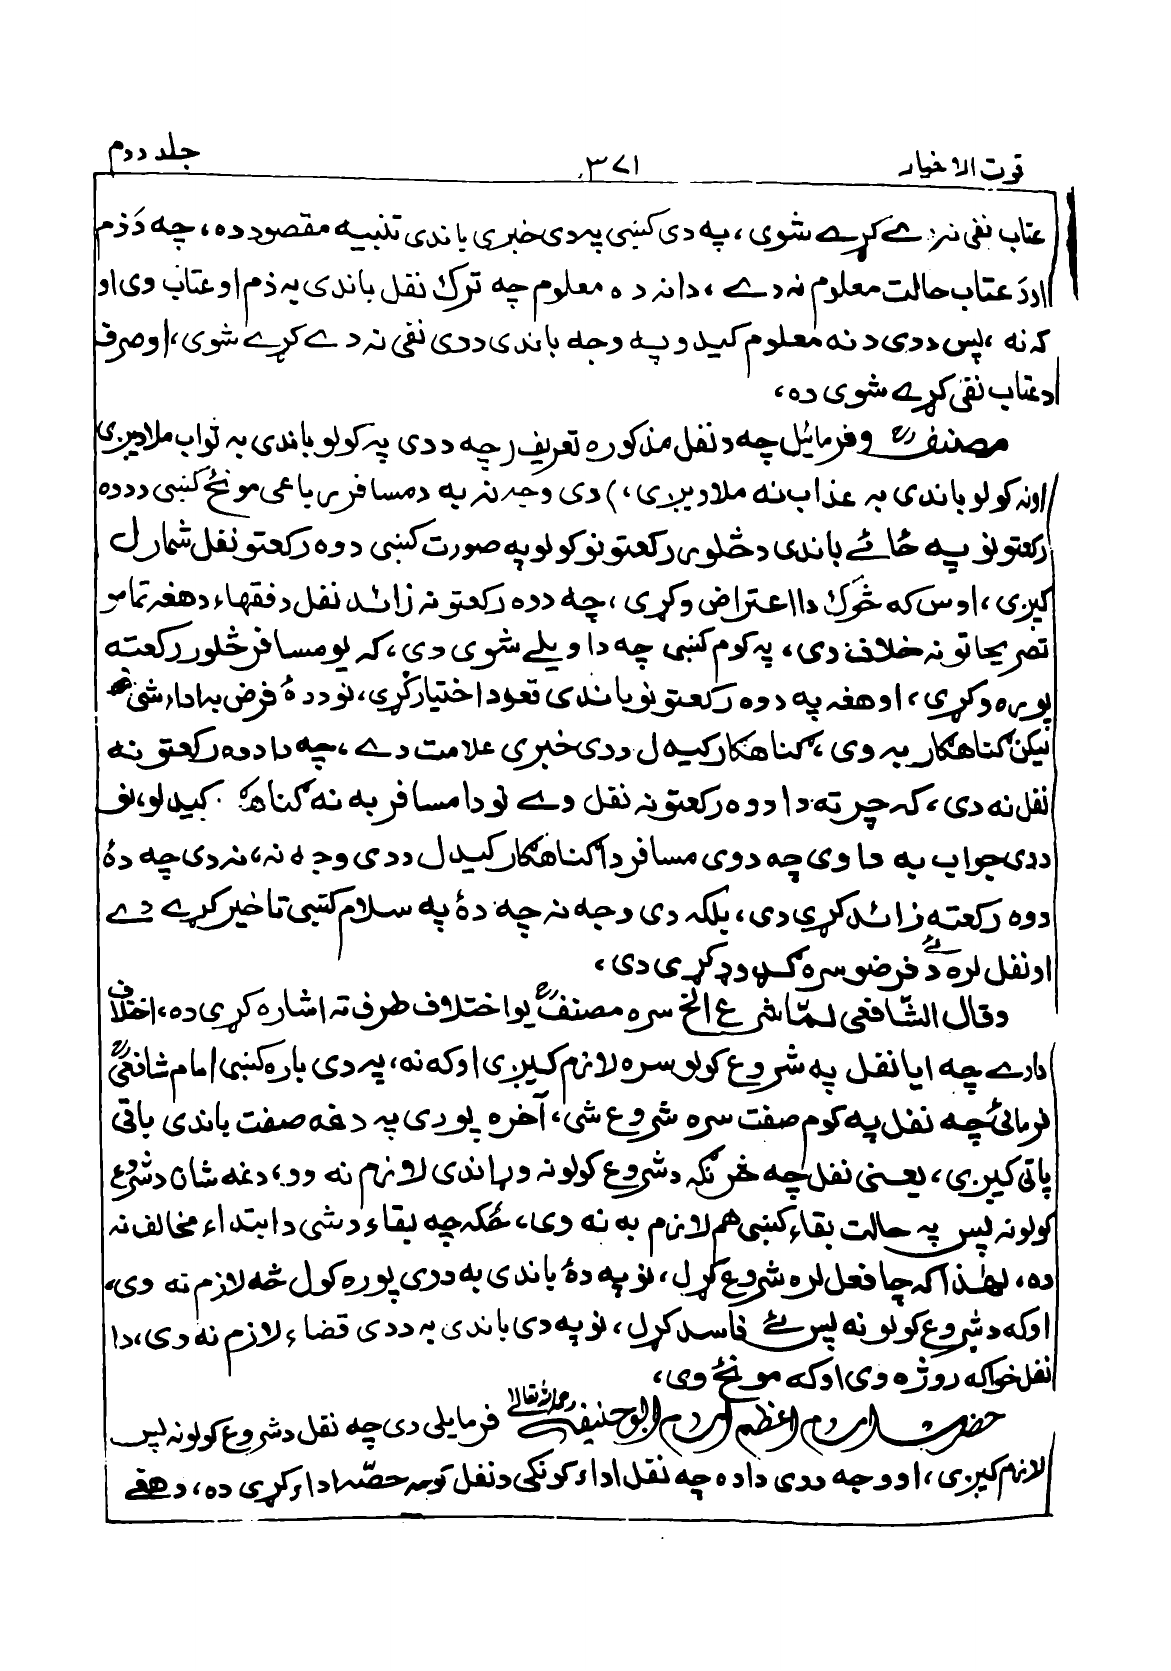 قوت الاخیار ۳۷۱ جلد دوم
عتاب نفی نہ دے کړے شوی، په دی کښی په دی خبری باندی تنبیه مقصود ده، چه دَ ذم
او دَ عتاب حالت معلوم نہ دے، دا نہ ده معلوم چه ترک نفل باندی به ذم او عتاب وی او
که نه، پس ددی د نه معلوم کیدو په وجه باندی ددی نفی نہ دے کړے شوی، او صرف
د عتاب نفی کړے شوی ده،
مصنفؒ و فرمائیل چه د نفل مذکوره تعریف (چه ددی په کولو باندی به ثواب ملاویږی
او نه کولو باندی به عذاب نه ملاویږی،) دی وجہ نہ به د مسافر رباعی مونځ کښی د دوه
رکعتونو په ځائے باندی د څلوری رکعتونو کولو په صورت کښی دوه رکعتو نفل شمارل
کیږی، اوس که څوک دا اعتراض وکړی، چه دوه رکعتو نہ زائد نفل د فقهاء د هغه تمامو
تصریحاتو نہ خلاف دی، په کوم کښی چه دا ویلے شوی دی، که یو مسافر څلور رکعته
پوره وکړی، او هغه په دوه رکعتونو باندی قعود اختیار کړی، نو ددۀ فرض به اداء شی
لیکن ګناهګار به وی، ګناهګار کیدل ددی خبری علامت دے، چه دا دوه رکعتو نه
نفل نه دی، که چرته دا دوه رکعتو نہ نفل وے نو دا مسافر به نه ګناهګار کیدلو، نو
ددی جواب به دا وی چه دوی مسافر دا ګناهګار کیدل ددی وجہ نہ، نہ دی چه دۀ
دوه رکعته زائد کړی دی، بلکه دی وجہ نہ چه دۀ په سلام کښی تاخیر کړے دے
او نفل لره ئے دَ فرضو سره ګډ وډ کړی دی،
وقال الشافعی لمّا شرع الخ سره مصنفؒ یو اختلاف طرف ته اشاره کړی ده، اختلاف
دارے چه ایا نفل په شروع کولو سره لازم کیږی او که نه، په دی باره کښی امام شافعیؒ
فرمائی چه نفل په کوم صفت سره شروع شی، آخره پوری په دغه صفت باندی باقی
پاتی کیږی، یعنی نفل چه څرنګه د شروع کولو نه وړاندی لازم نه وو، دغه شان د شروع
کولو نه پس په حالت بقاء کښی هم لازم به نه وی، ځکه چه بقاء د شی د ابتداء مخالف نه
ده، لهٰذا که چا فعل لره شروع کړل، نو په دۀ باندی به ددی پوره کول څه لازم نه وی،
او که د شروع کولو نه پس ئے فاسد کړل، نو په دی باندی به ددی قضاء لازم نه وی، دا
نفل خوا که روژه وی او که مونځ وی،
حضرت امام اعظم امام ابو حنیفه رحمه الله تعالی فرمایلی دی چه نفل د شروع کولو نه پس
لازم کیږی، او وجہ ددی داده چه نفل اداء کونکی د نفل کومه حصّه اداء کړی ده، د هغے